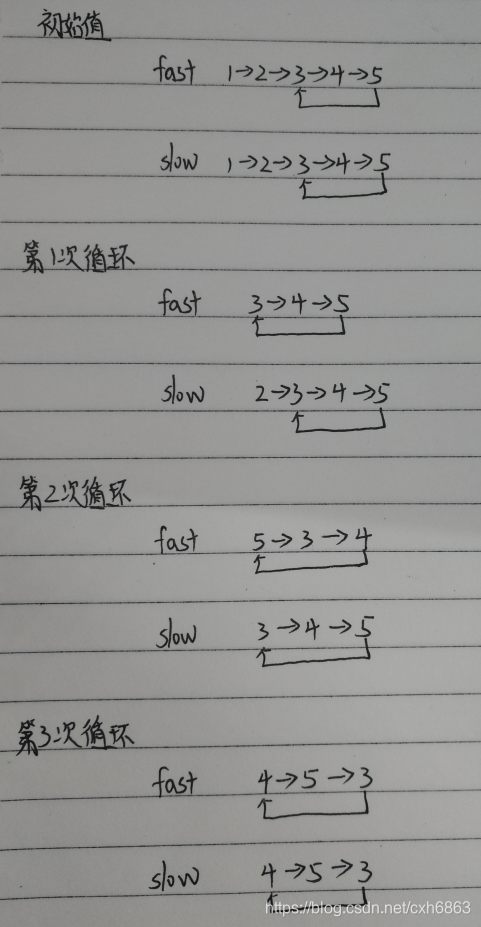 初始值
fast 1→2→3→4→5
slow 1→2→3→4→5
第1次循环
fast 3→4→5
slow 2→3→4→5
第2次循环
fast 5→3→4
slow 3→4→5
第3次循环
fast 4→5→3
slow 4→5→3
https://blog.csdn.net/cxh6863